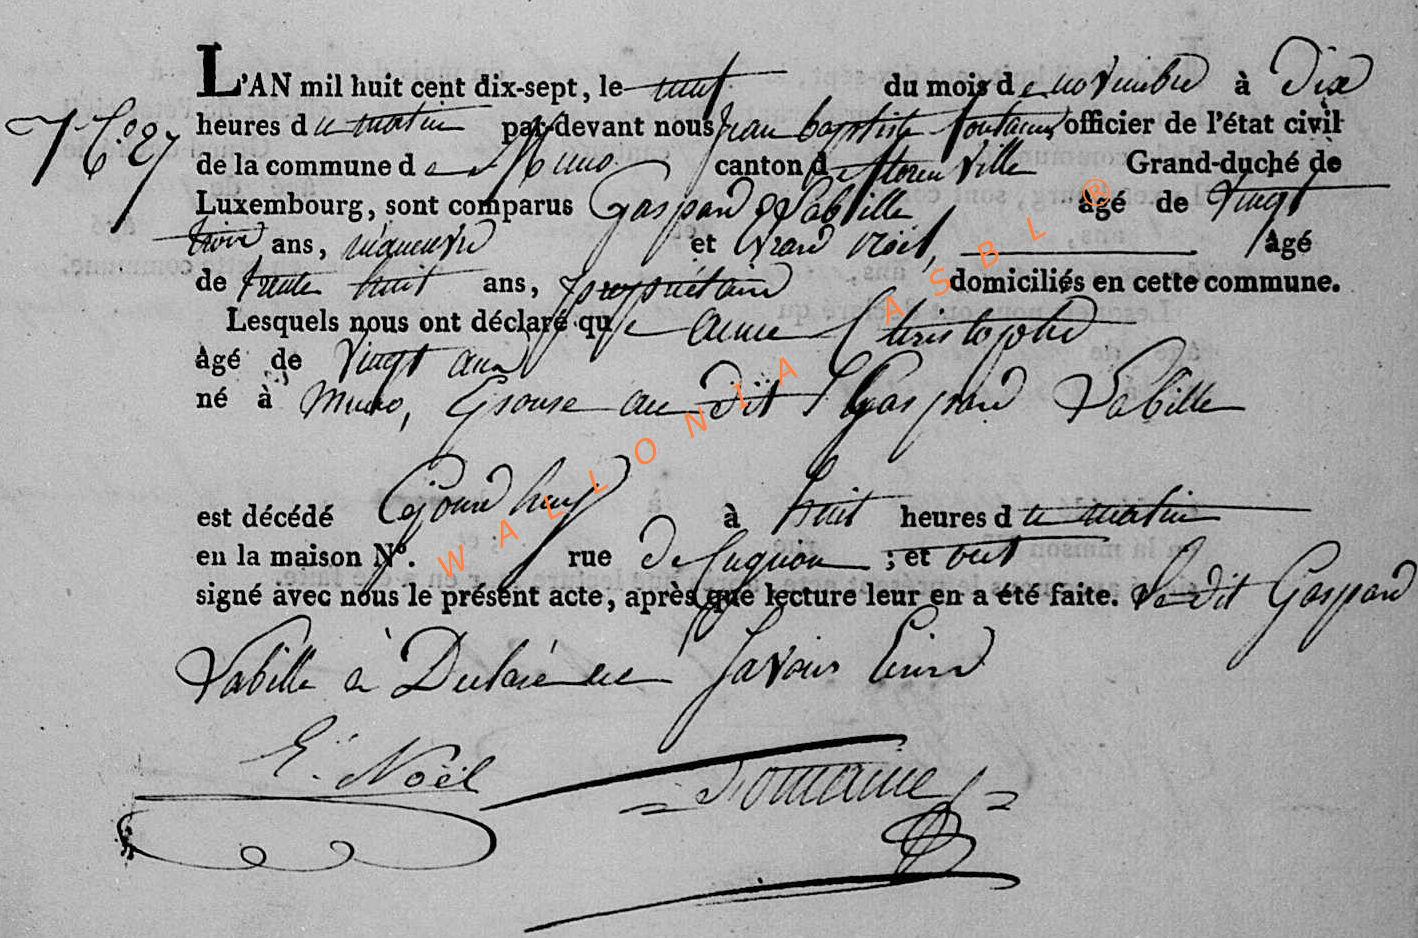 L'AN mil huit cent dix-sept, le huit du mois de novembre à Dix
N.o 27
heures du matin par-devant nous jean baptiste fontaine officier de l'état civil
de la commune de Muno canton de florenville Grand-duché de
Luxembourg, sont comparus Gaspard Labille, âgé de vingt
trois ans, et Noël, âgé
de trente huit ans, propriétaire domiciliés en cette commune.
Lesquels nous ont déclaré que anne Christophe
âgé de vingt ans
né à Muno, Epouse au dit Gaspard Labille
est décédé Cejourd'huy à huit heures du matin
en la maison N.º rue de Lugnon ; et ont
signé avec nous le présent acte, après que lecture leur en a été faite. Le dit Gaspard
Labille à Déclaré ne Savoir Ecrire
E. Noël fontaine
WALLONIA ASBL ®